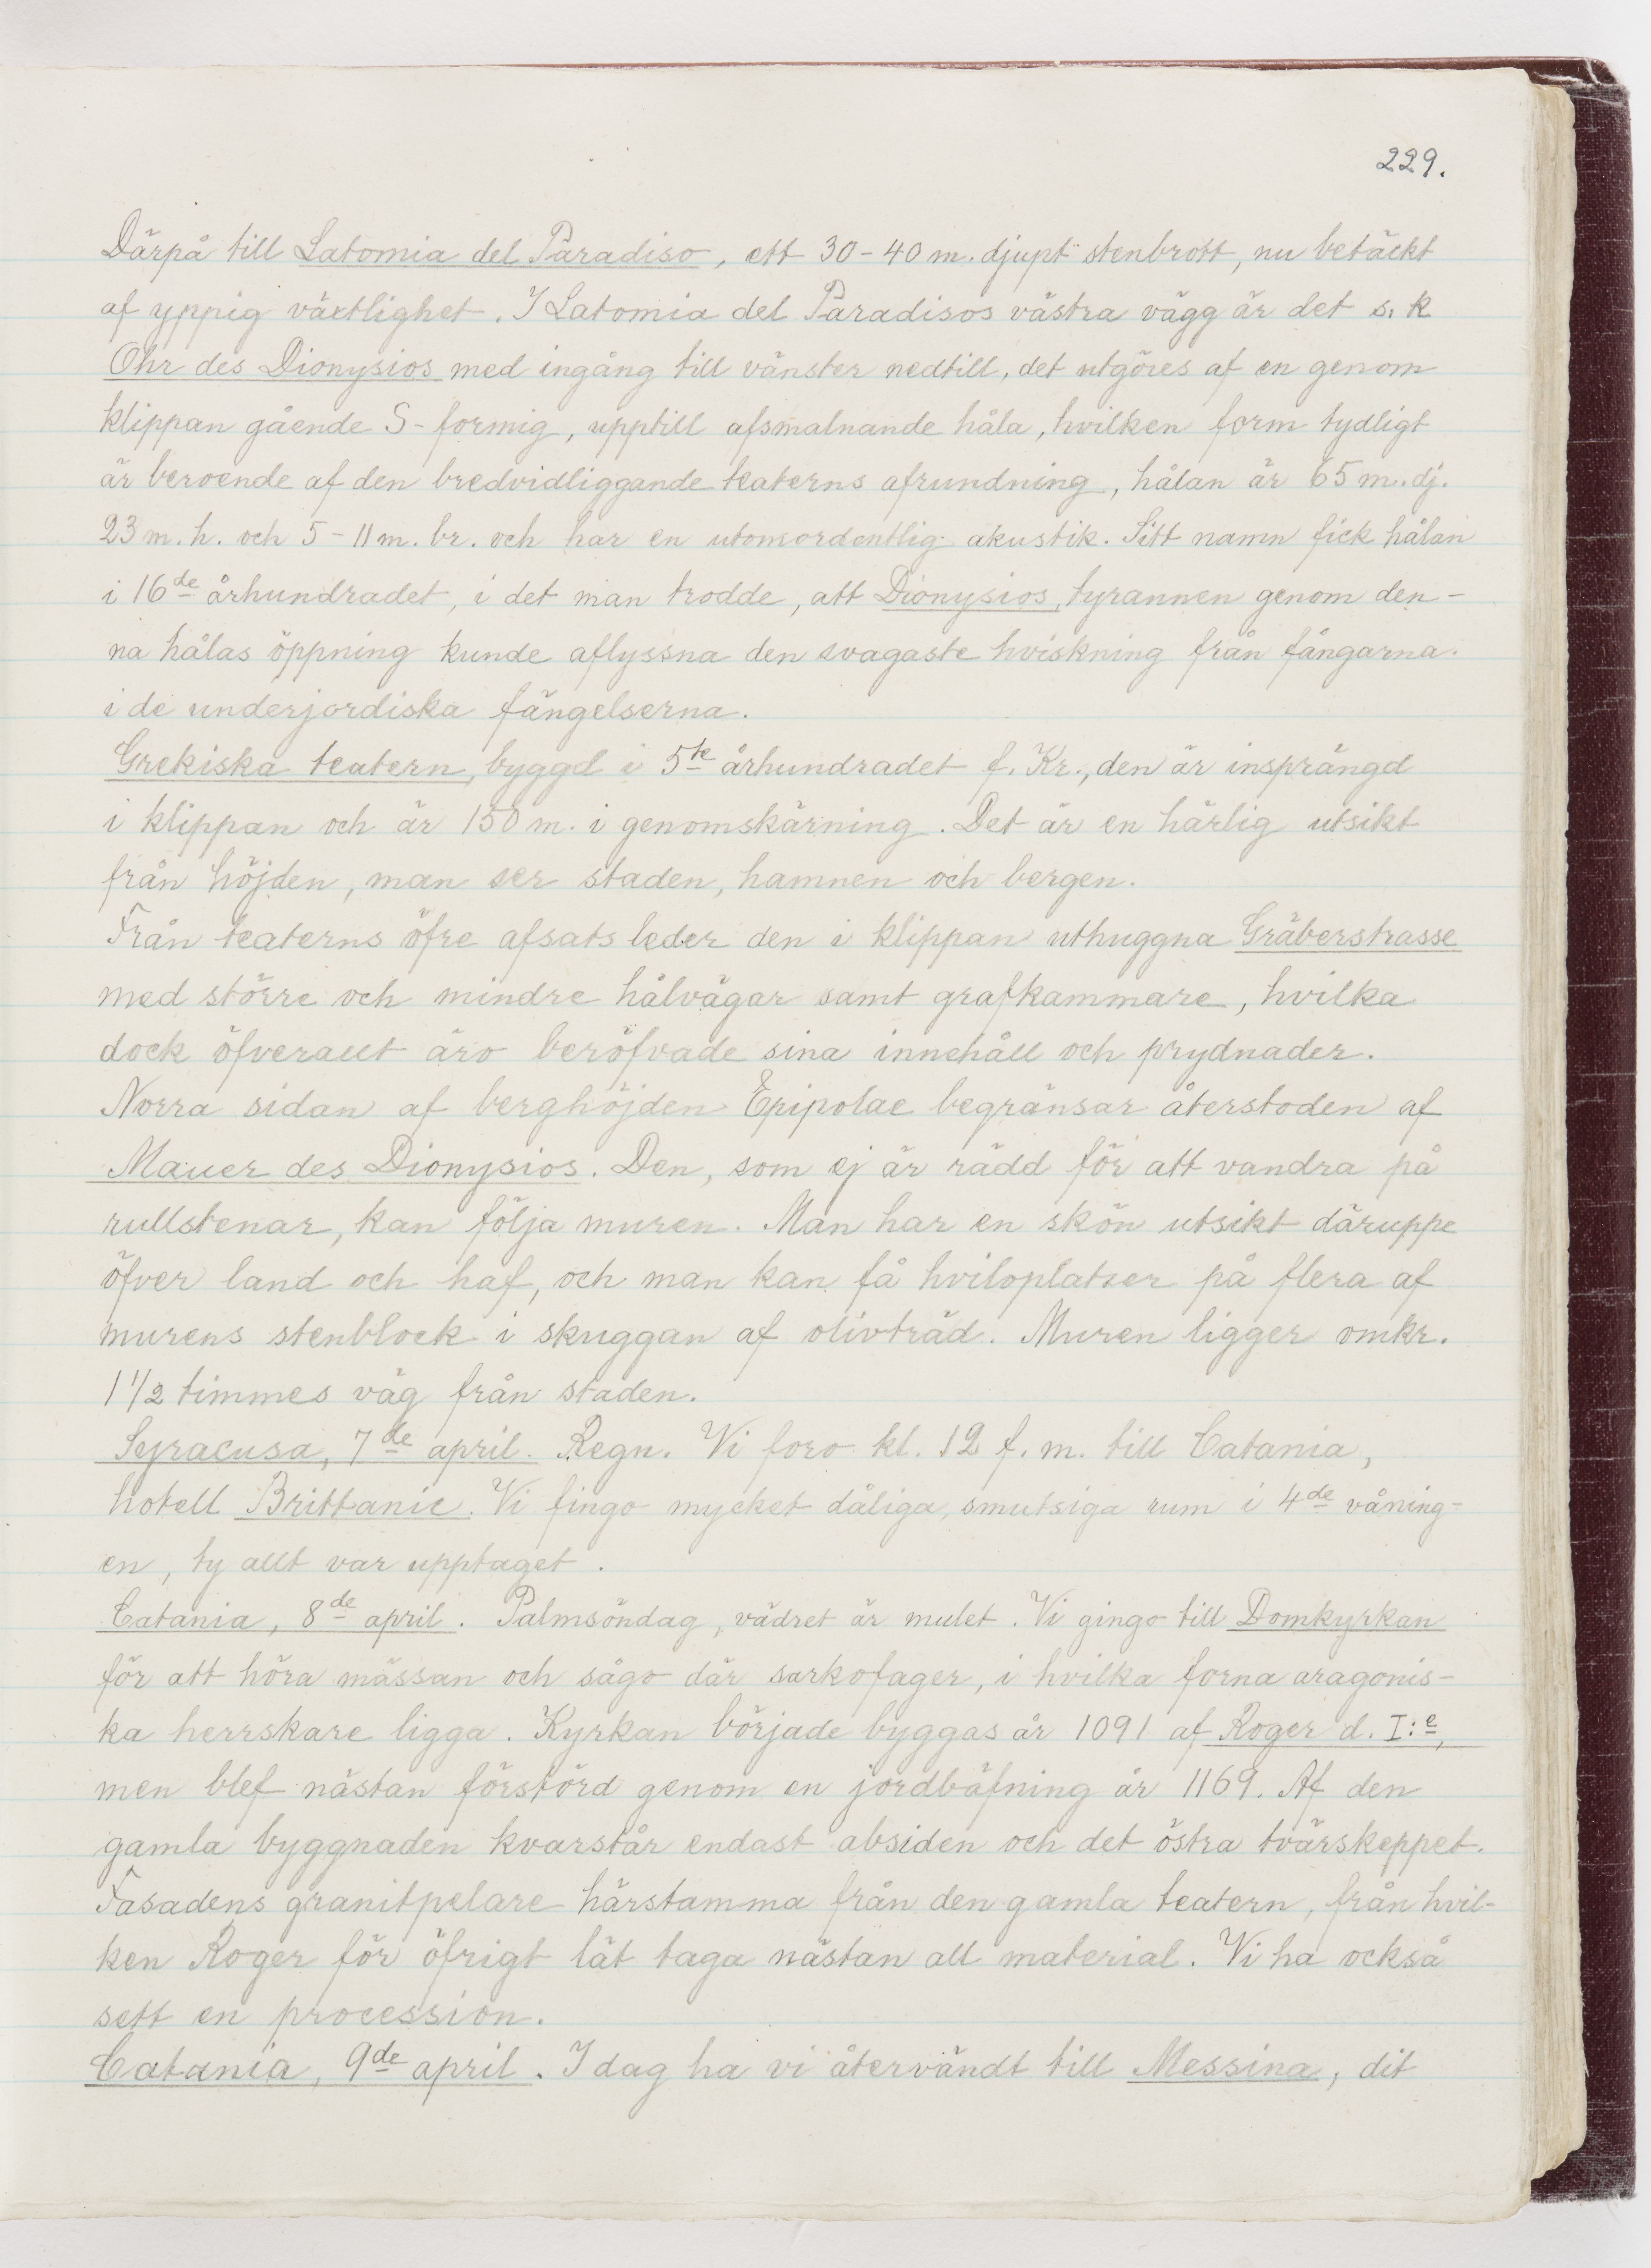 229.
Därpå till Latomia del Paradiso, ett 30-40 m. djupt stenbrott, nu betäckt
af yppig växtlighet. I Latomia del Paradisos västra vägg är det s.k
Ohr des Dionysios med ingång till vänster nedtill, det utgöres af en genom
klippan gående S-formig, upptill afsmalnande håla, hvilken form tydligt
är beroende af den bredvidliggande teaterns afrundning, hålan är 65 m. dj.
23 m. h. och 5-11 m. br. och har en utomordentlig akustik. Sitt namn fick hålan
i 16de århundradet, i det man trodde, att Dionysios, tyrannen genom den-
na hålas öppning kunde aflyssna den svagaste hviskning från fångarna
i de underjordiska fängelserna.
Grekiska teatern, byggd i 5te århundradet f. Kr., den är insprängd
i klippan och är 150 m. i genomskärning. Det är en härlig utsikt
från höjden, man ser staden, hamnen och bergen.
Från teaterns öfre afsats leder den i klippan uthuggna Gräberstrasse
med större och mindre hålvägar samt grafkammare, hvilka
dock öfverallt äro beröfvade sina innehåll och prydnader.
Norra sidan af berghöjden Epipolae begränsar återstoden af
Mauer des Dionysios. Den, som ej är rädd för att vandra på
rullstenar, kan följa muren. Man har en skön utsikt däruppe
öfver land och haf, och man kan få hviloplatser på flera af
murens stenblock i skuggan af olivträd. Muren ligger omkr.
1 1/2 timmes väg från staden.
Syracusa, 7de april. Regn. Vi foro kl. 12 f. m. till Catania,
hotell Brittanic. Vi fingo mycket dåliga, smutsiga rum i 4de våning-
en, ty allt var upptaget.
Catania, 8de april. Palmsöndag, vädret är mulet. Vi gingo till Domkyrkan
för att höra mässan och sågo där sarkofager, i hvilka forna aragonis-
ka herrskare ligga. Kyrkan började byggas år 1091 af Roger d. I:e,
men blef nästan förstörd genom en jordbäfning år 1169. Af den
gamla byggnaden kvarstår endast absiden och det östra tvärskeppet.
Fasadens granitpelare härstamma från den gamla teatern, från hvil-
ken Roger för öfrigt lät taga nästan allt material. Vi ha också
sett en procession.
Catania, 9de april. I dag ha vi återvändt till Messina, dit